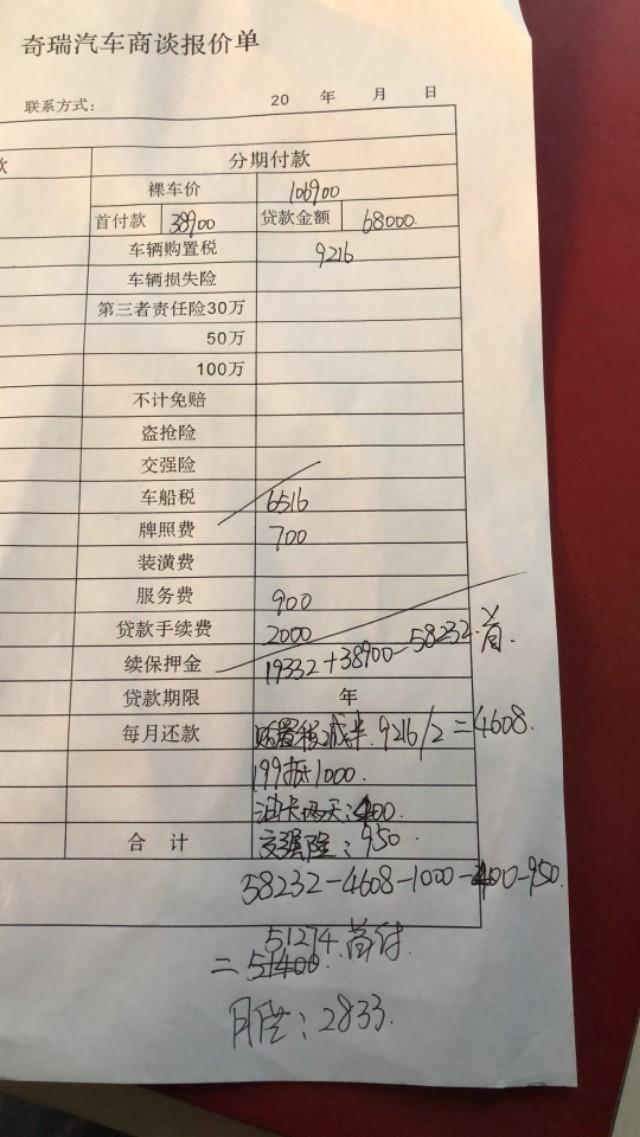 奇瑞汽车商谈报价单
联系方式： 20 年 月 日
款 分期付款
裸车价 106900
首付款 38900 贷款金额 68000.
车辆购置税 9216
车辆损失险
第三者责任险30万
50万
100万
不计免赔
盗抢险
交强险
车船税 6516
牌照费 700
装潢费
服务费 900
贷款手续费 2000
续保押金 19332+38900=58232.首.
贷款期限 年
每月还款 购置税减半.9216/2=4608.
199抵1000.
油卡两天:400.
合 计 交强险:950.
58232-4608-1000-400-950.
51274.首付.
= 51400.
月供:2833.